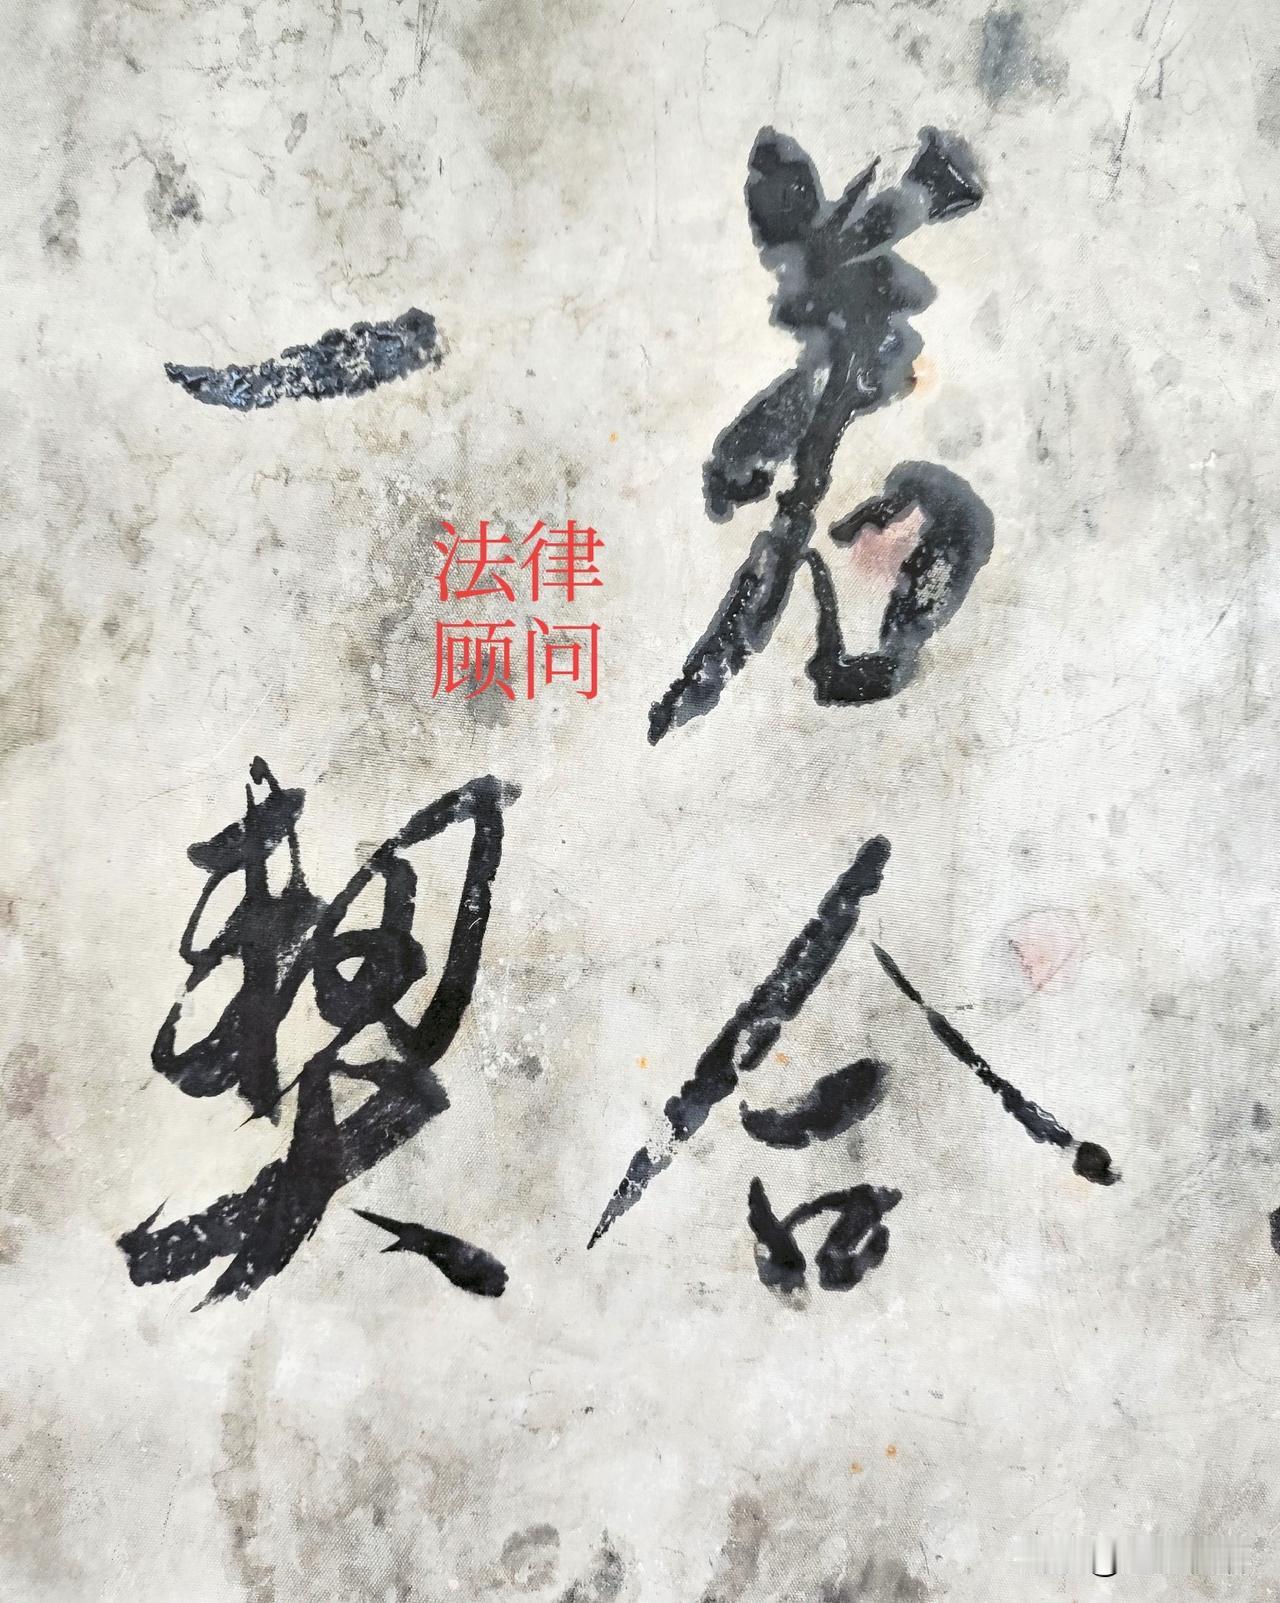 若合
一契
法律
顾问